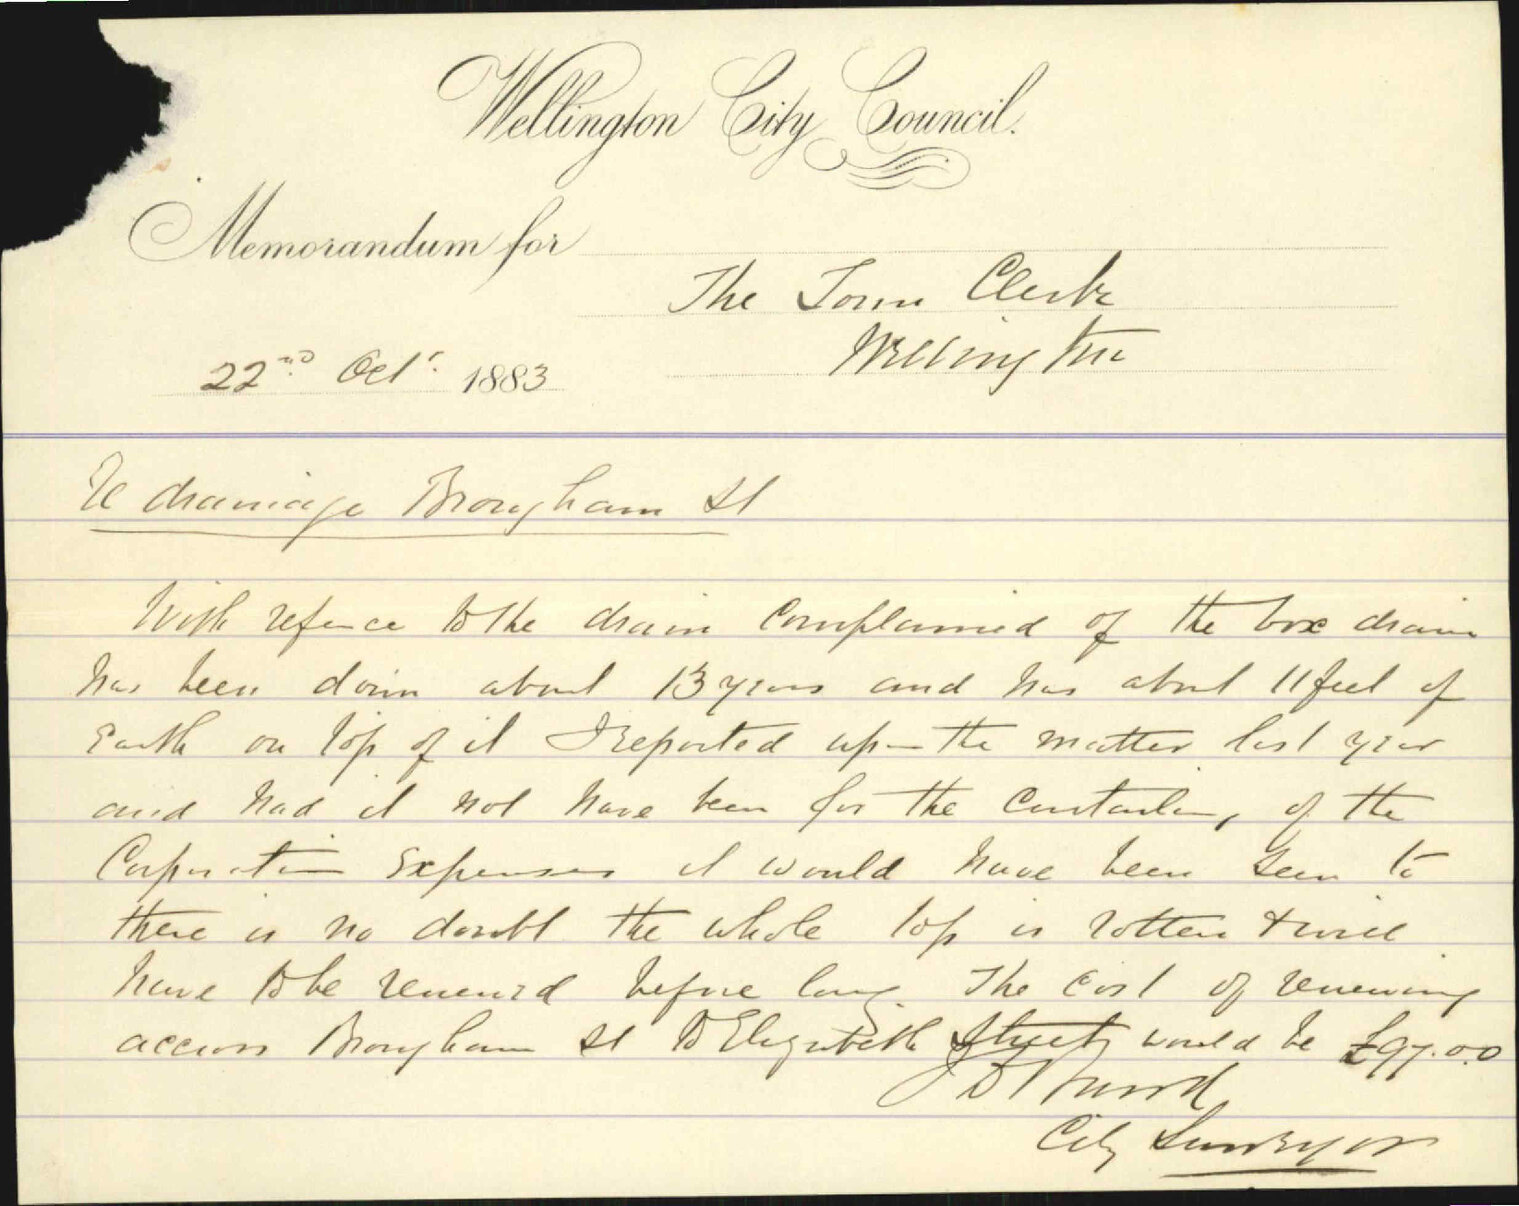 Wellington City Council.
Memorandum for
The Town Clerk
Wellington
22nd Octr. 1883
Re drainage Brougham St
With refence to the drain Complained of the box drain
has been down about 13 years and has about 11 feet of
Earth on top of it I reported upon the matter last year
and had it not have been for the of the
Corporation Expenses it would have been seen to
there is no doubt the whole top is rotten & will
have to be renewed before long. The Cost of renewing
across Brougham St to Elizabeth Street would be £97.0.0
City Surveyor